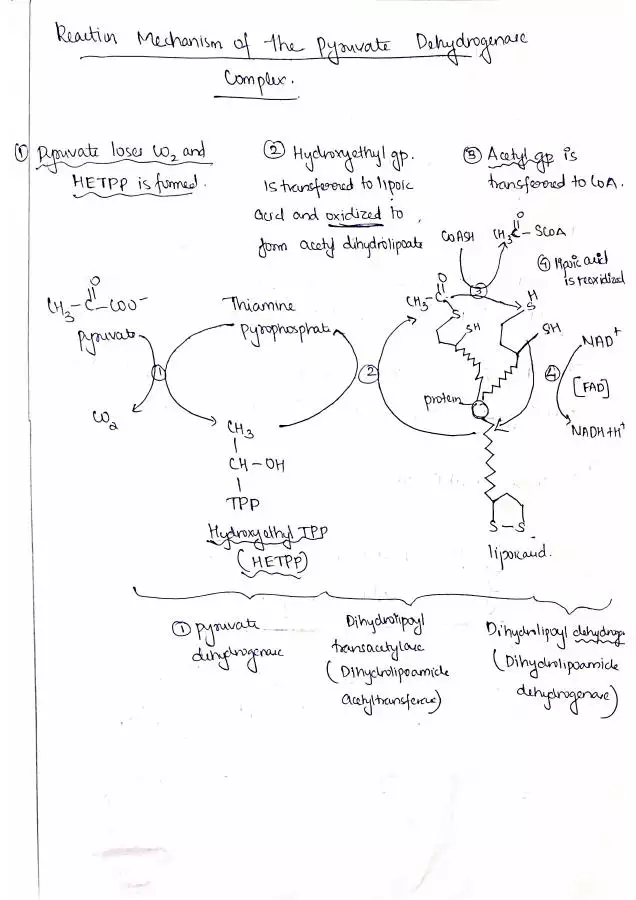 Reaction Mechanism of the Pyruvate Dehydrogenase
Complex.
① Pyruvate loses CO2 and
HETPP is formed.
② Hydroxyethyl gp.
is transferred to lipoic
acid and oxidized to
form acetyl dihydrolipoate
③ Acetyl gp is
transferred to CoA.
COASH
CH3-C-SCOA
O
④ lipoic acid
is reoxidized
O
CH3-C-COO-
Pyruvate
Thiamine
pyrophosphate
O
CH3-C
S
SH
③
H
S
SH
NAD+
①
②
④
[FAD]
protein
CO2
NADH+H+
CH3
CH-OH
TPP
Hydroxyethyl TPP
(HETPP)
S-S
lipoic acid.
① Pyruvate
dehydrogenase
Dihydrolipoyl
transacetylase
(Dihydrolipoamide
acetyltransferase)
Dihydrolipoyl dehydrog
(Dihydrolipoamide
dehydrogenase)